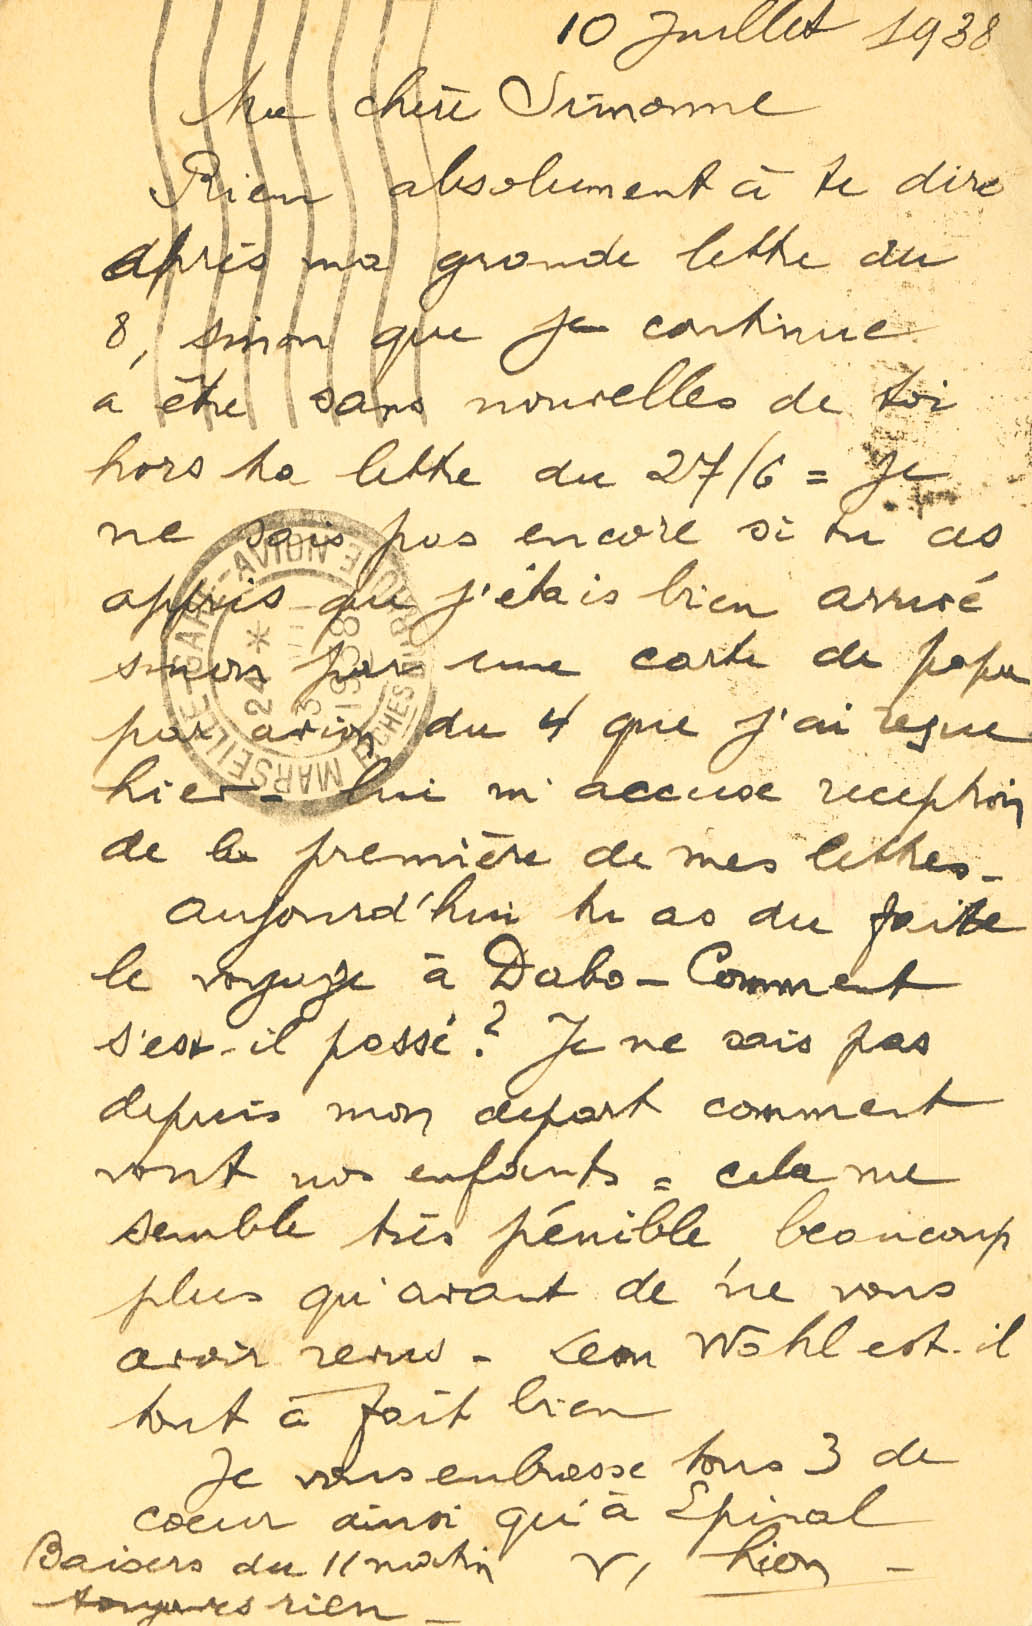 10 Juillet 1938
Ma chère Simonne
Rien absolument à te dire
après ma grande lettre du
8, sinon que je continue
a être sans nouvelles de toi
hors ta lettre du 27/6 = Je
ne sais pas encore si tu as
appris que j'étais bien arrivé
sinon par une carte de papa
par avion du 4 que j'ai reçue
hier - lui m'accuse reception
de la première de mes lettres -
Aujourd'hui tu as du faire
le voyage à Dabo - Comment
s'est-il passé ? Je ne sais pas
depuis mon depart comment
vont nos enfants = cela me
semble très pénible, beaucoup
plus qu'avant de ne vous
avoir revus - Leon Wahl est-il
tout à fait bien
Je vous embrasse tous 3 de
coeur ainsi qu'à Epinal
Baisers du 11 matin
toujours rien -
MARSEILLE-GARE-AVION
24 *
3
1938
BCHES DU RHONE